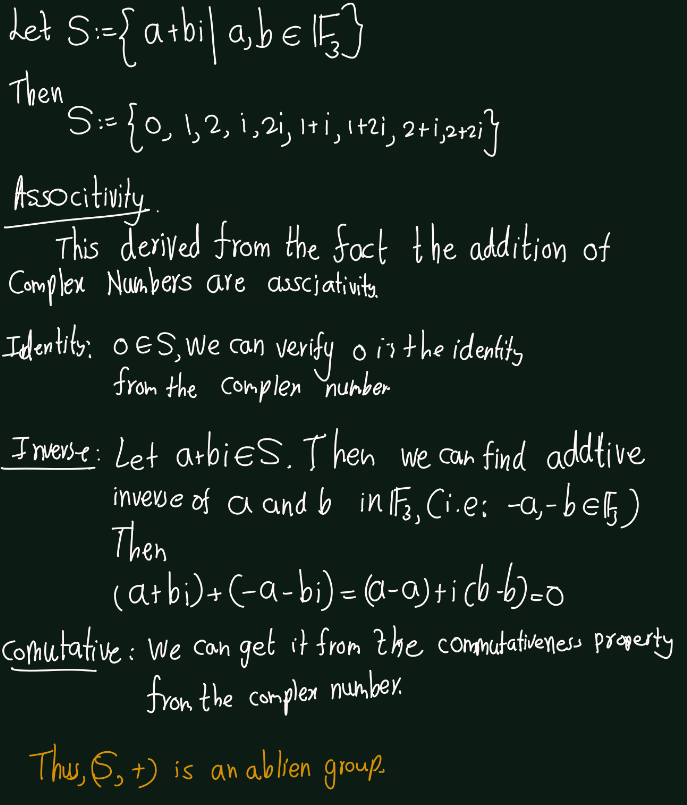 Let S:={ a+bi | a,b ∈ 𝔽₃}
Then
S:= {0, 1, 2, i, 2i, 1+i, 1+2i, 2+i, 2+2i}
Associtivity.
This derived from the fact the addition of
Complex Numbers are asscjativity.
Identity: 0∈S, We can verify 0 is the identity
from the complex number
Inverse: Let a+bi∈S. Then we can find addtive
inverse of a and b in 𝔽₃, (i.e: -a,-b∈𝔽₃)
Then
(a+bi)+(-a-bi)=(a-a)+i(b-b)=0
Comutative: We can get it from the commutativeness property
from the complex number.
Thus, (S, +) is an ablien group.